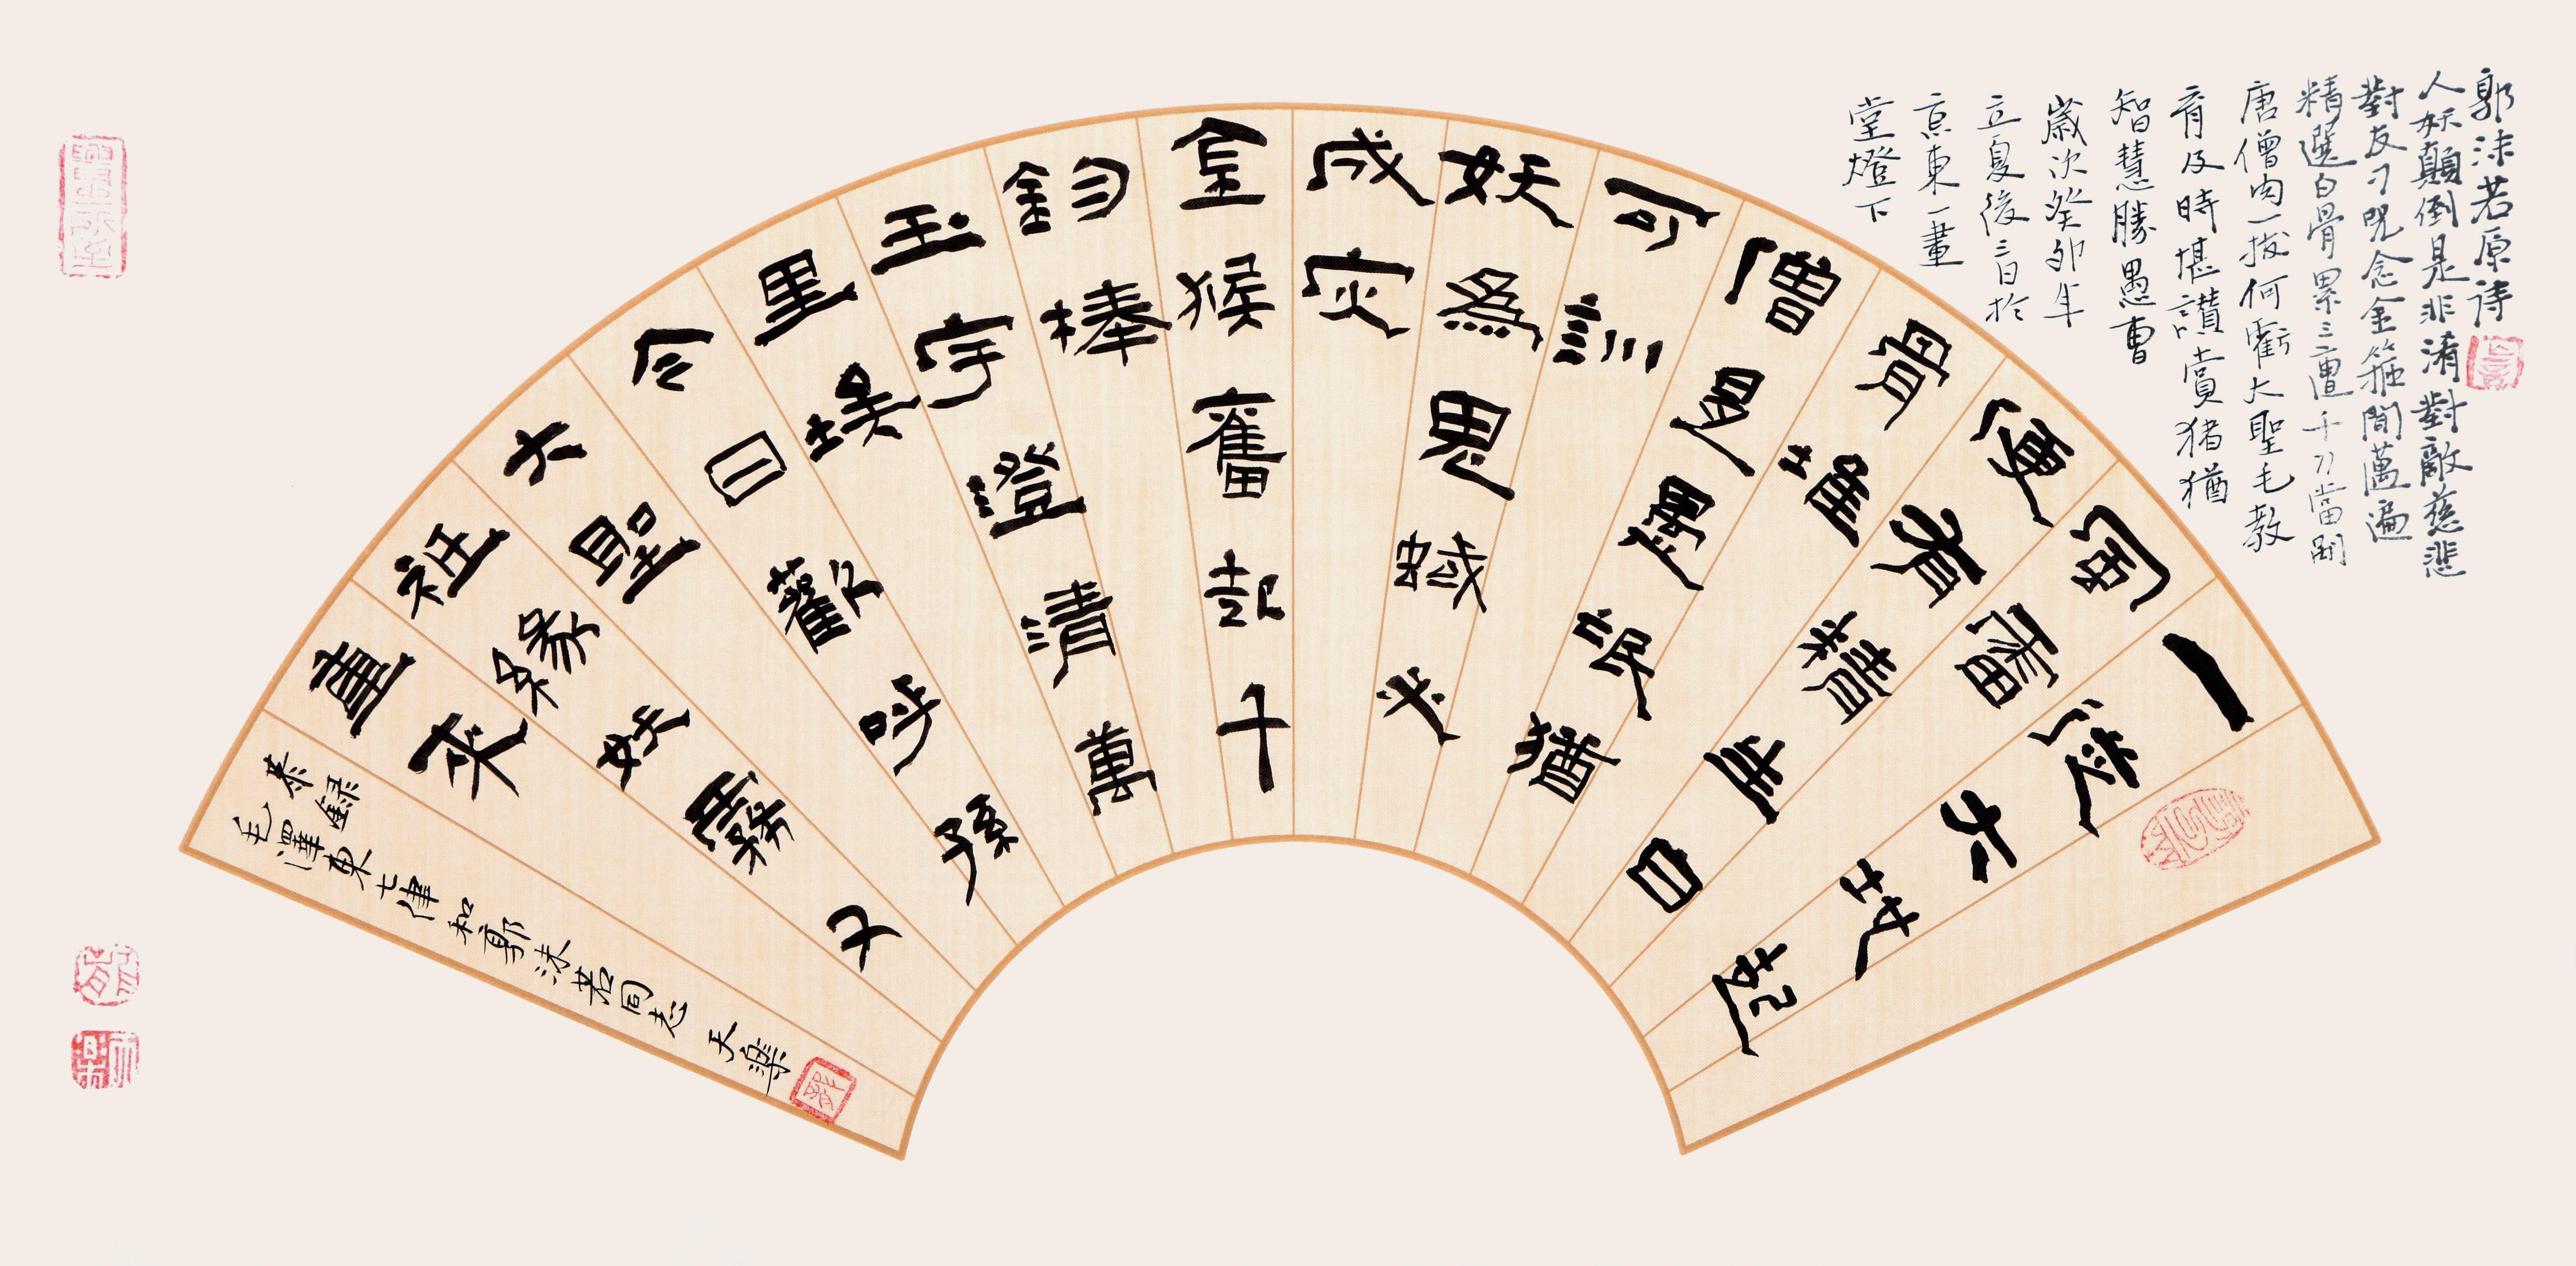 郭沫若原詩
人妖顛倒是非淆對敵慈悲
對友刁呪念金箍聞萬遍
精選白骨累三遭千刀當剮
唐僧肉一拔何虧大聖毛教
育及時堪讚賞猪猶
智慧勝愚曹
歲次癸卯年
立夏後三日於
京東一畫
堂燈下
一從大地起
風雷
便有精生白
骨堆
僧是愚氓猶
可訓
妖為鬼蜮必
成灾
金猴奮起千
鈞棒
玉宇澄清萬
里埃
今日歡呼孫
大聖
祇緣妖霧又
重來
恭録
毛澤東七律和郭沫若同志 天樂